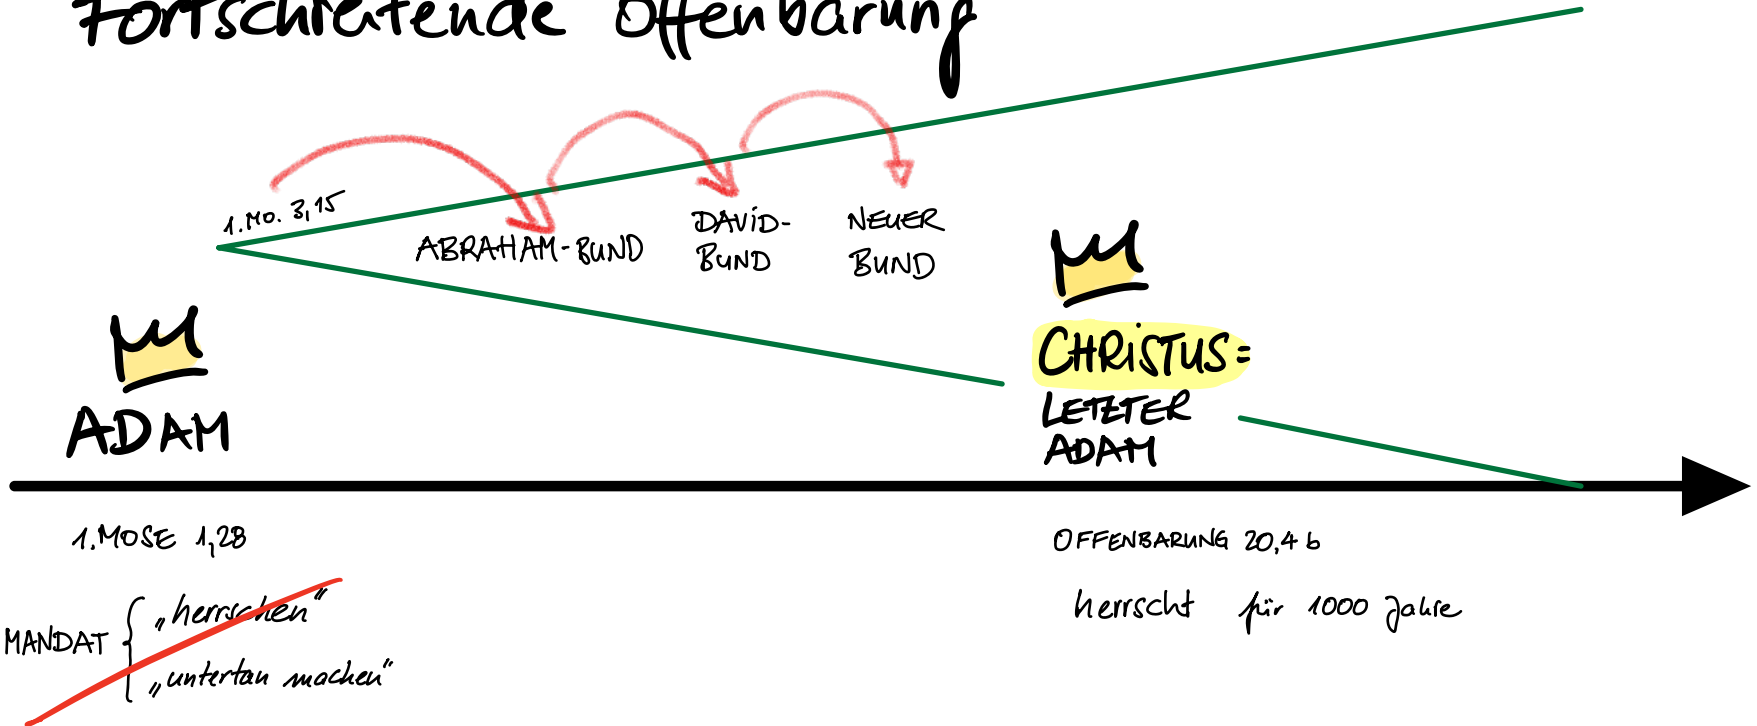 Fortschreitende Offenbarung
1.MO. 3,15
ABRAHAM-BUND
DAViD-
BUND
NEUER
BUND
ADAM
CHRiSTUS=
LETZTER
ADAM
1.MOSE 1,28
OFFENBARUNG 20,4 b
MANDAT
„herrschen“
„untertan machen“
herrscht für 1000 Jahre